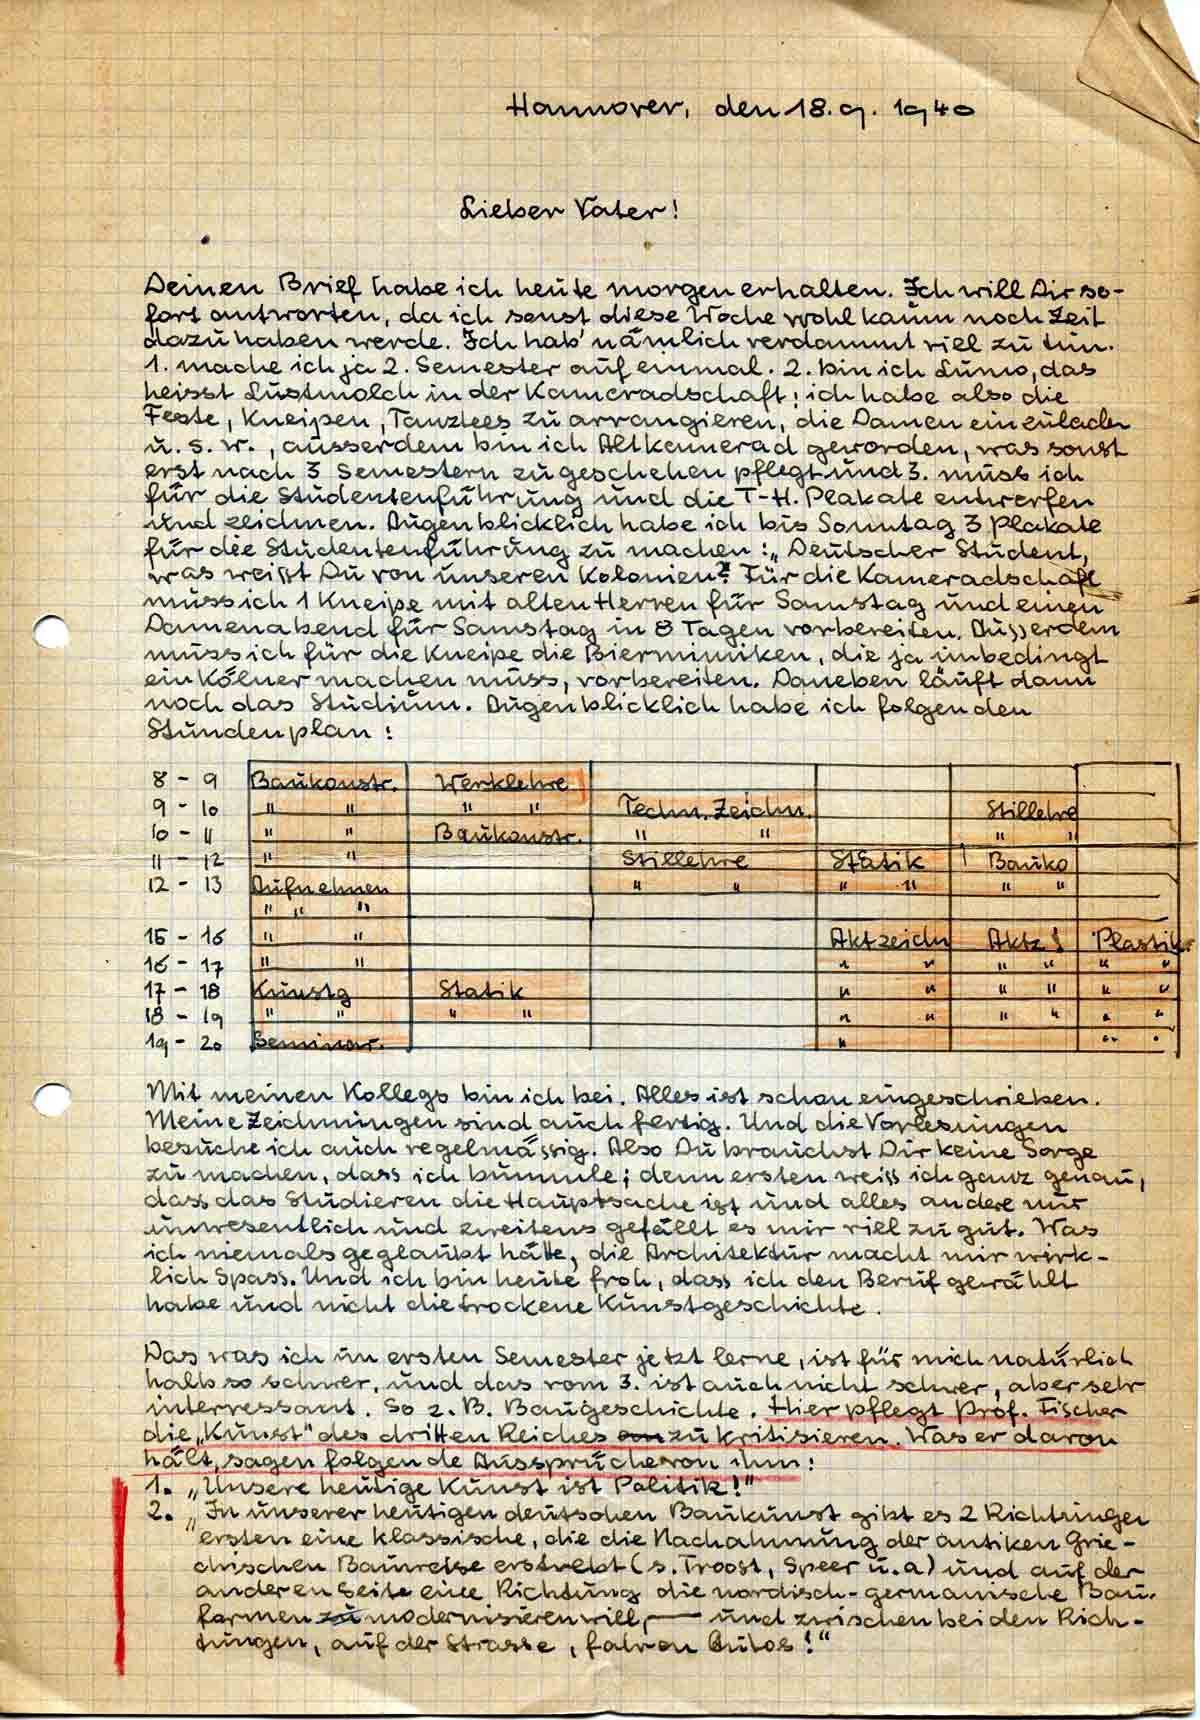 Hannover, den 18.9.1940
Lieber Vater!
Deinen Brief habe ich heute morgen erhalten. Ich will Dir so-
fort antworten, da ich sonst diese Woche wohl kaum noch Zeit
dazu haben werde. Ich hab' nämlich verdammt viel zu tun.
1. mache ich ja 2. Semester auf einmal. 2. bin ich Lumo, das
heisst Lustmolch in der Kameradschaft; ich habe also die
Feste, Kneipen, Tanztees zu arrangieren, die Damen einzuladen
u. s. w., ausserdem bin ich Altkamerad geworden, was sonst
erst nach 3 Semestern zu geschehen pflegt und 3. muss ich
für die Studentenführung und die T-H. Plakate entwerfen
und zeichnen. Augenblicklich habe ich bis Sonntag 3 Plakate
für die Studentenführung zu machen: „Deutscher Student,
was weißt Du von unseren Kolonien?" Für die Kameradschaft
muss ich 1 Kneipe mit alten Herren für Samstag und einen
Damenabend für Samstag in 8 Tagen vorbereiten. Ausserdem
muss ich für die Kneipe die Biermimiken, die ja unbedingt
ein Kölner machen muss, vorbereiten. Daneben läuft dann
noch das Studium. Augenblicklich habe ich folgenden
Stundenplan:
8 - 9 Baukonstr. Werklehre
9 - 10 " " " " Techn. Zeichn. Stillehre
10 - 11 " " Baukonstr. " " " "
11 - 12 " " Stillehre Statik Bauko
12 - 13 Aufnehmen " " " " " "
" " "
15 - 16 " " Aktzeichn Aktz! Plastik
16 - 17 " " " " " " " "
17 - 18 Kunstg Statik " " " " " "
18 - 19 " " " " " " " " " "
19 - 20 Seminar. " " "
Mit meinen Kollegs bin ich bei. Alles ist schon eingeschrieben.
Meine Zeichnungen sind auch fertig. Und die Vorlesungen
besuche ich auch regelmässig. Also Du brauchst Dir keine Sorge
zu machen, dass ich bummle; denn ersten weiss ich ganz genau,
dass das Studieren die Hauptsache ist und alles andere nur
unwesentlich und zweitens gefällt es mir viel zu gut. Was
ich niemals geglaubt hätte, die Architektur macht mir wirk-
lich Spass. Und ich bin heute froh, dass ich den Beruf gewählt
habe und nicht die trockene Kunstgeschichte.
Das was ich im ersten Semester jetzt lerne, ist für mich natürlich
halb so schwer, und das vom 3. ist auch nicht schwer, aber sehr
interressant. So z. B. Baugeschichte. Hier pflegt Prof. Fischer
die „Kunst" des dritten Reiches zu kritisieren. Was er davon
hält, sagen folgende Aussprüche von ihm:
1. „Unsere heutige Kunst ist Politik!"
2. „In unserer heutigen deutschen Baukunst gibt es 2 Richtungen
ersten eine klassische, die die Nachahmung der antiken Grie-
chischen Bauweise erstrebt (s. Troost, Speer u. a) und auf der
anderen Seite eine Richtung die nordisch-germanische Bau-
formen modernisieren will, — und zwischen beiden Rich-
tungen, auf der Strasse, fahren Autos!"